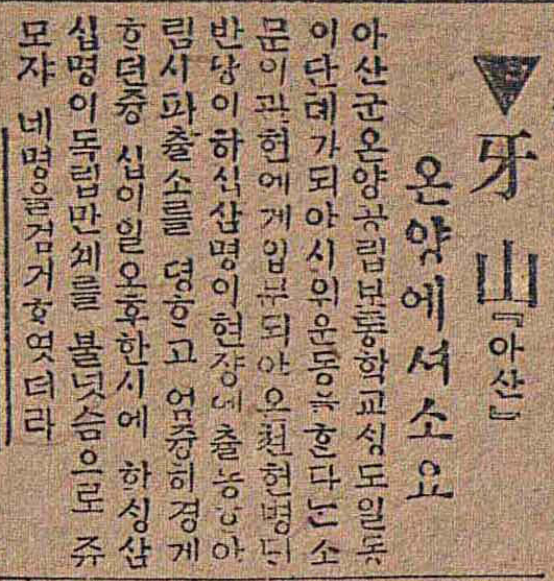 牙山『아산』
온양에서소요
아산군온양공립보통학교싱도일동
이단톄가되야시위운동을흔다는소
문이관헌에게입문되야오쳔헌병분
반당이하식삼명이현쟝에출동ᄒᆞ야
림시파츌소를뎡ᄒᆞ고엄즁히경계
ᄒᆞ던즁십이일오후한시에하싱삼
십명이독립만세를불넛슴으로쥬
모쟈네명을검거ᄒᆞ엿더라